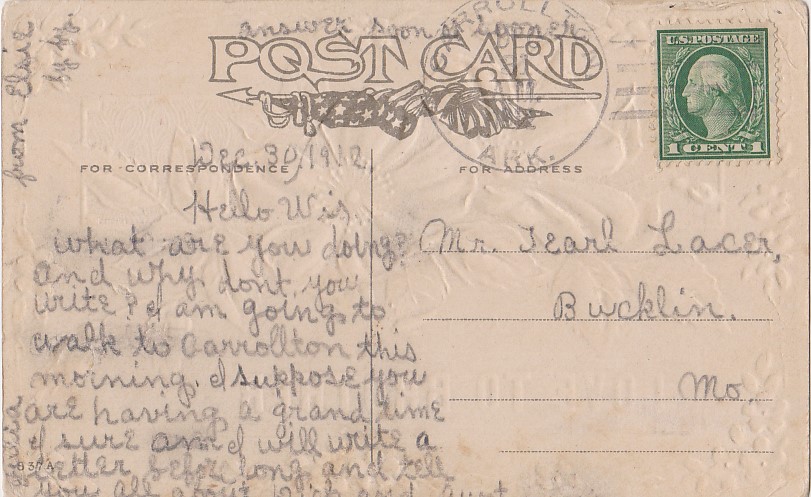 answer soon & sooner
POST CARD
U.S. POSTAGE
1 CENT 1
ARK.
from Elsie
by by.
Dec. 30, 1912.
FOR CORRESPONDENCE
FOR ADDRESS
Hello Wis.
what are you doing?
and why dont you
write? I am going to
walk to Carrollton this
morning. I suppose you
are having a grand time
I sure am I will write a
letter before long and tell
you all about
537A
Mr. Pearl Lacer,
Bucklin.
Mo.